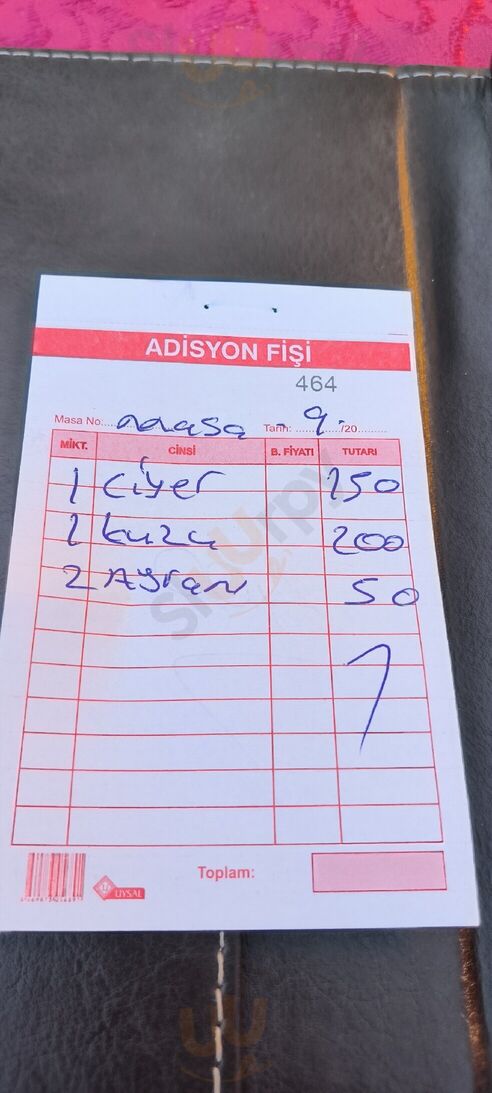 ADİSYON FİŞİ
464
Masa No:.... masa - 9. Tarih: ....../20.........
MİKT. CİNSİ B. FİYATI TUTARI
1 Ciyer 150
1 kuzu 200
2 Ayran 50
Toplam:
UYSAL
Sluurpy